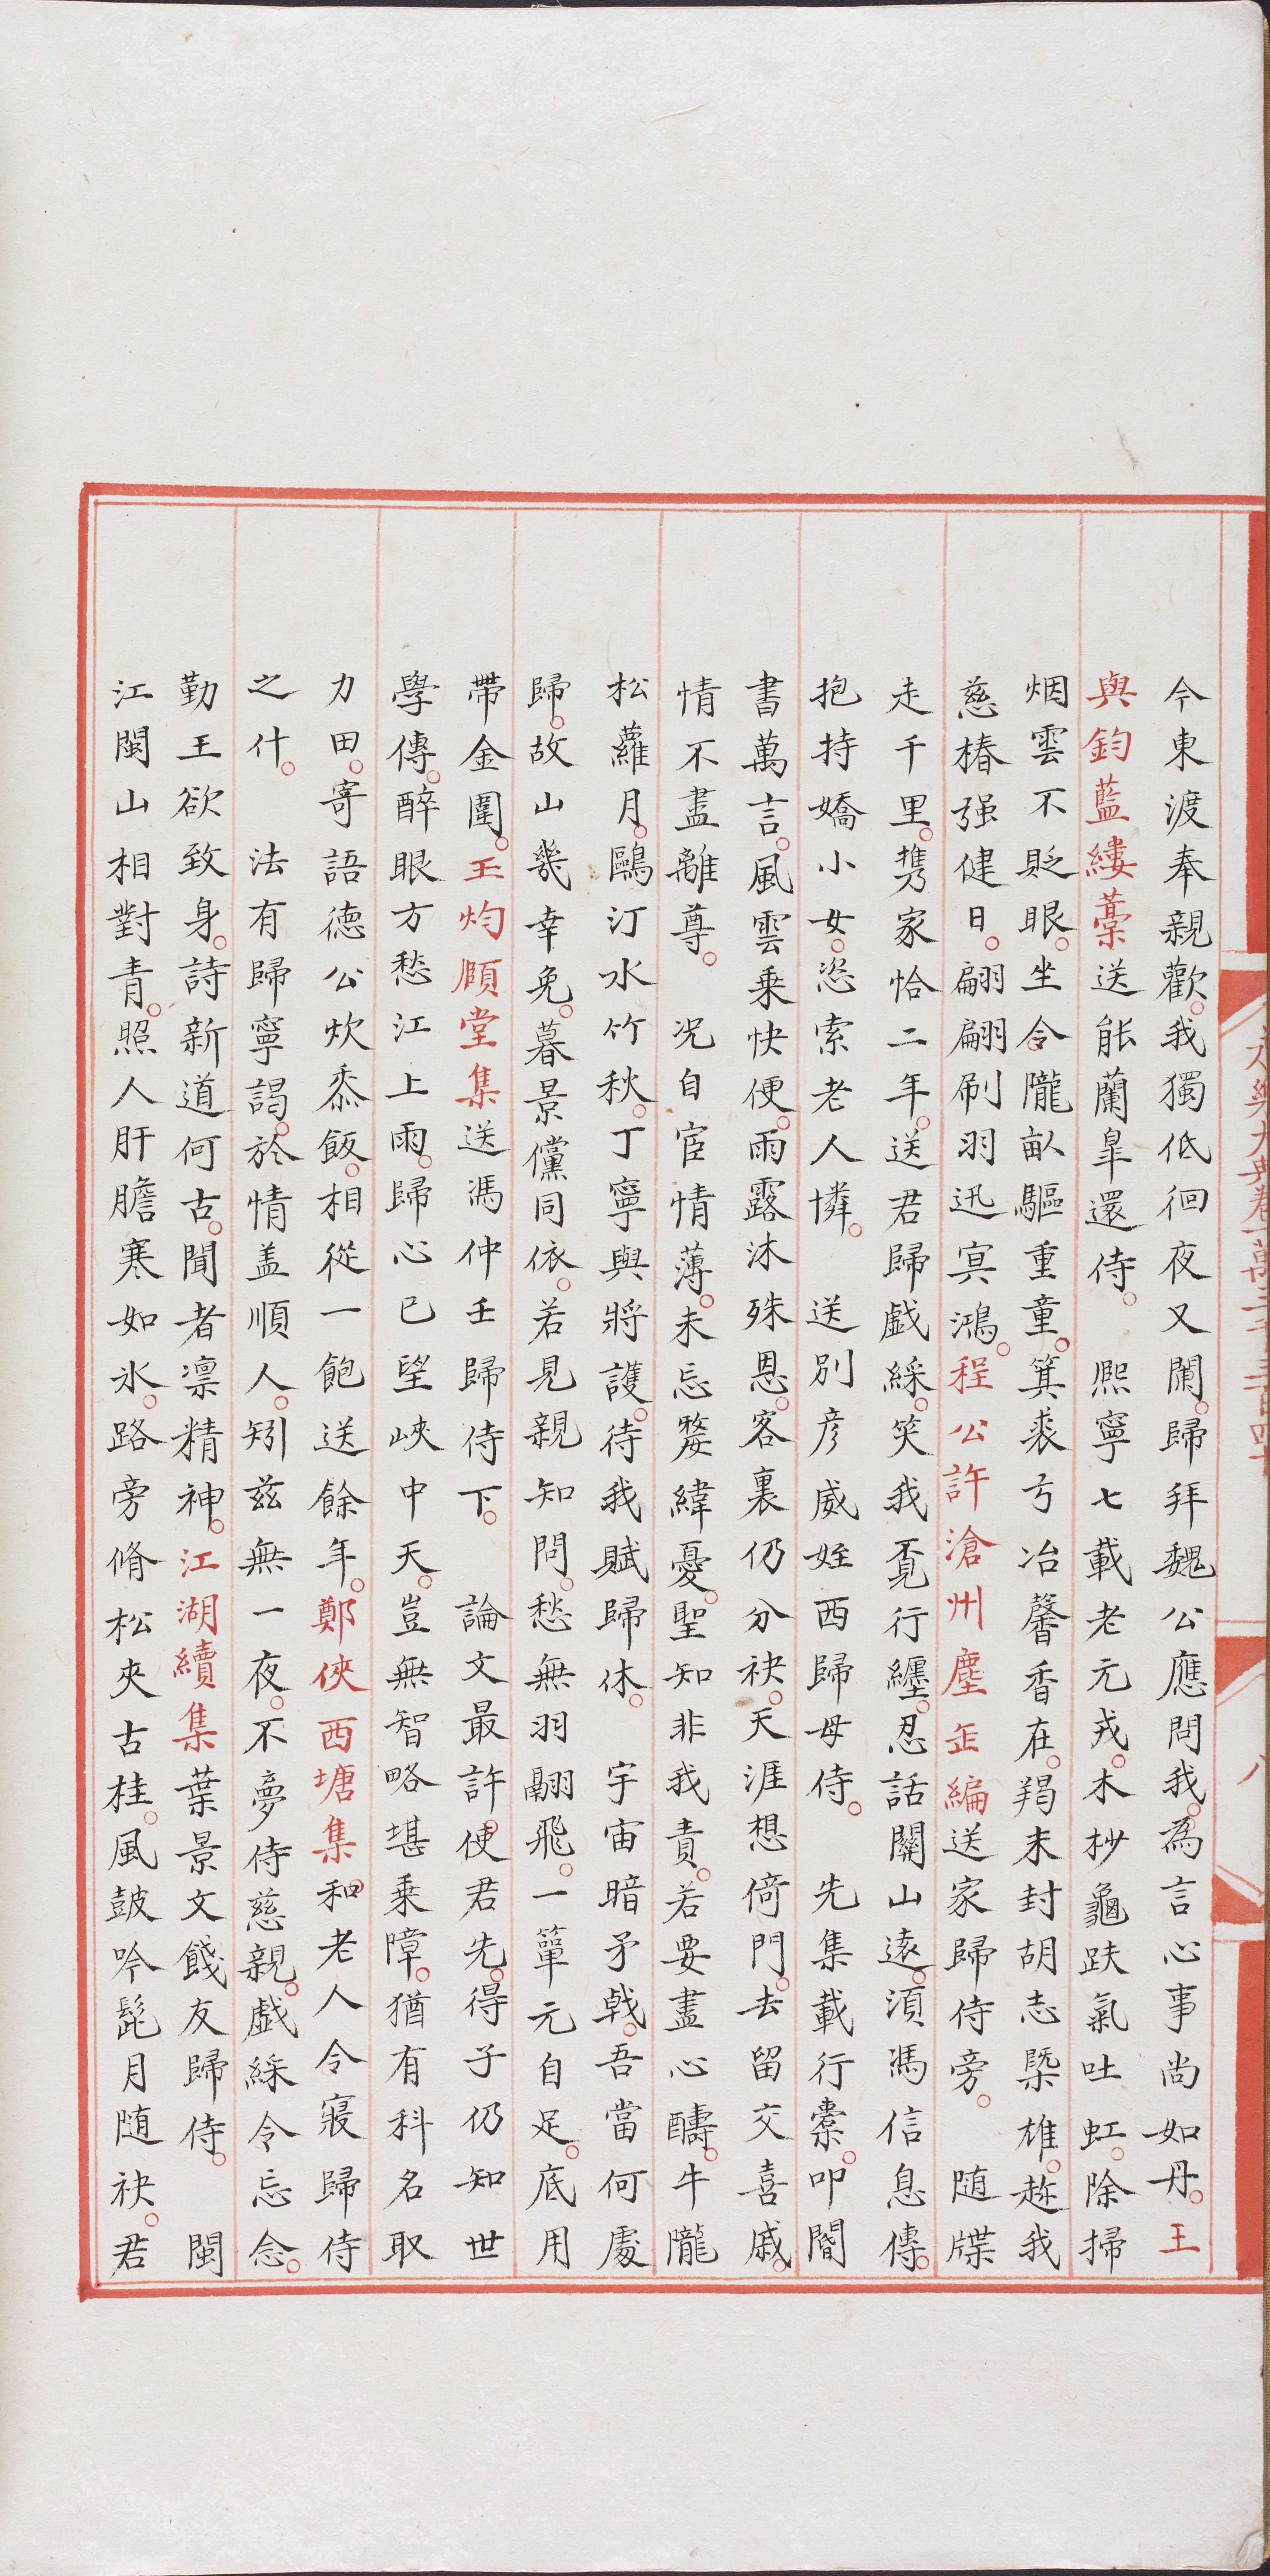 今東渡奉親歡我獨低徊夜又闌歸拜魏公應問我為言心事尚如丹王
與鈞藍縷藁送能蘭皐還侍 熙寧七載老元戎木杪龜趺氣吐虹除掃
烟雲不貶眼坐令隴畝驅重童箕裘亐冶馨香在羯末封胡志槩雄趂我
慈椿强健日翩翩刷羽迅冥鴻程公許滄州塵缶編送家歸侍旁 随牒
走千里携家恰二年送君歸戯綵笑我覔行纏忍話關山遠湏馮信息傳
抱持嬌小女恣索老人憐 送別彦威姪西歸母侍 先集載行橐叩閽
書萬言風雲乗快便雨露沐殊恩客裏仍分袂天涯想倚門去留交喜戚
情不盡離尊 况自宦情薄未忘嫠緯憂聖知非我責若要盡心醻牛隴
松蘿月鷗汀水竹秋丁寧與將護待我賦歸休 宇宙暗矛戟吾當何處
歸故山幾幸免暮景儻同依若見親知問愁無羽翮飛一簞元自足底用
帶金圍王灼頤堂集送馮仲壬歸侍下 論文最許使君先得子仍知世
學傳醉眼方愁江上雨歸心已望峽中天豈無智略堪乗障猶有科名取
力田寄語德公炊黍飯相從一飽送餘年鄭俠西塘集和老人令寢歸侍
之什 法有歸寧謁於情盖順人矧兹無一夜不夢侍慈親戯綵令忘念
勤王欲致身詩新道何古聞者凛精神江湖續集葉景文餞友歸侍 閩
江閩山相對青照人肝膽寒如氷路旁脩松夾古桂風皷吟髭月随袂君